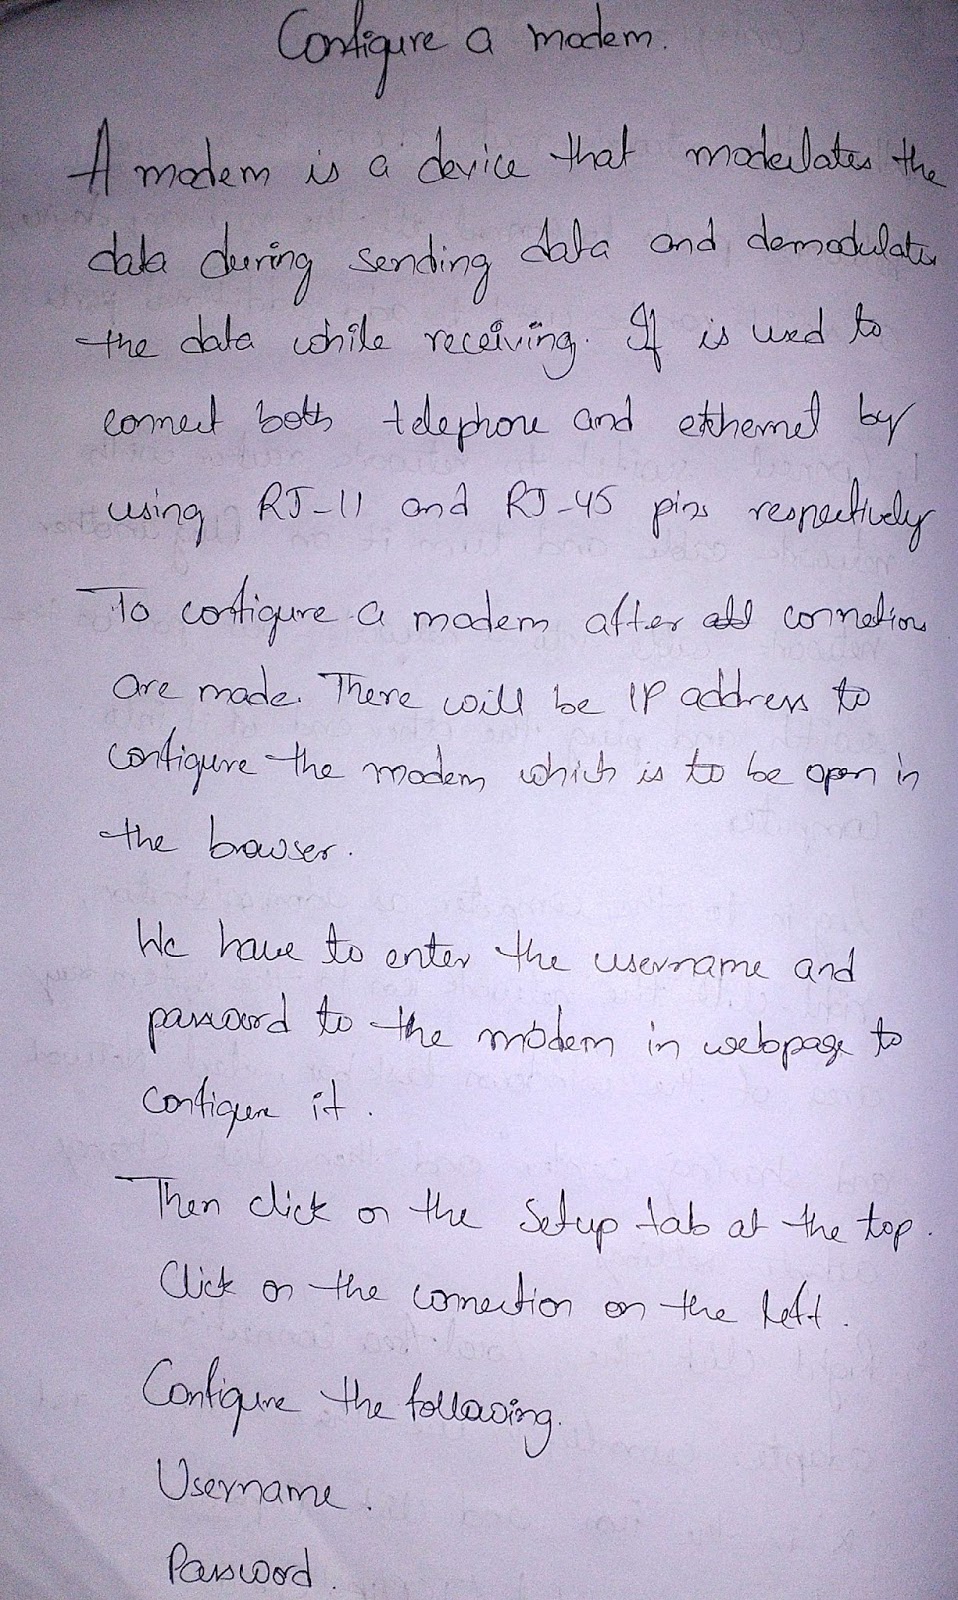 Configure a modem.
A modem is a device that modeulates the
data during sending data and demodulates
the data while receiving. It is used to
connect both telephone and ethernet by
using RJ-11 and RJ-45 pins respectively
To configure a modem after all connetions
are made. There will be IP address to
configure the modem which is to be open in
the browser.
We have to enter the username and
password to the modem in webpage to
configure it.
Then click on the Setup tab at the top.
Click on the connection on the left.
Configure the following.
Username.
Password.